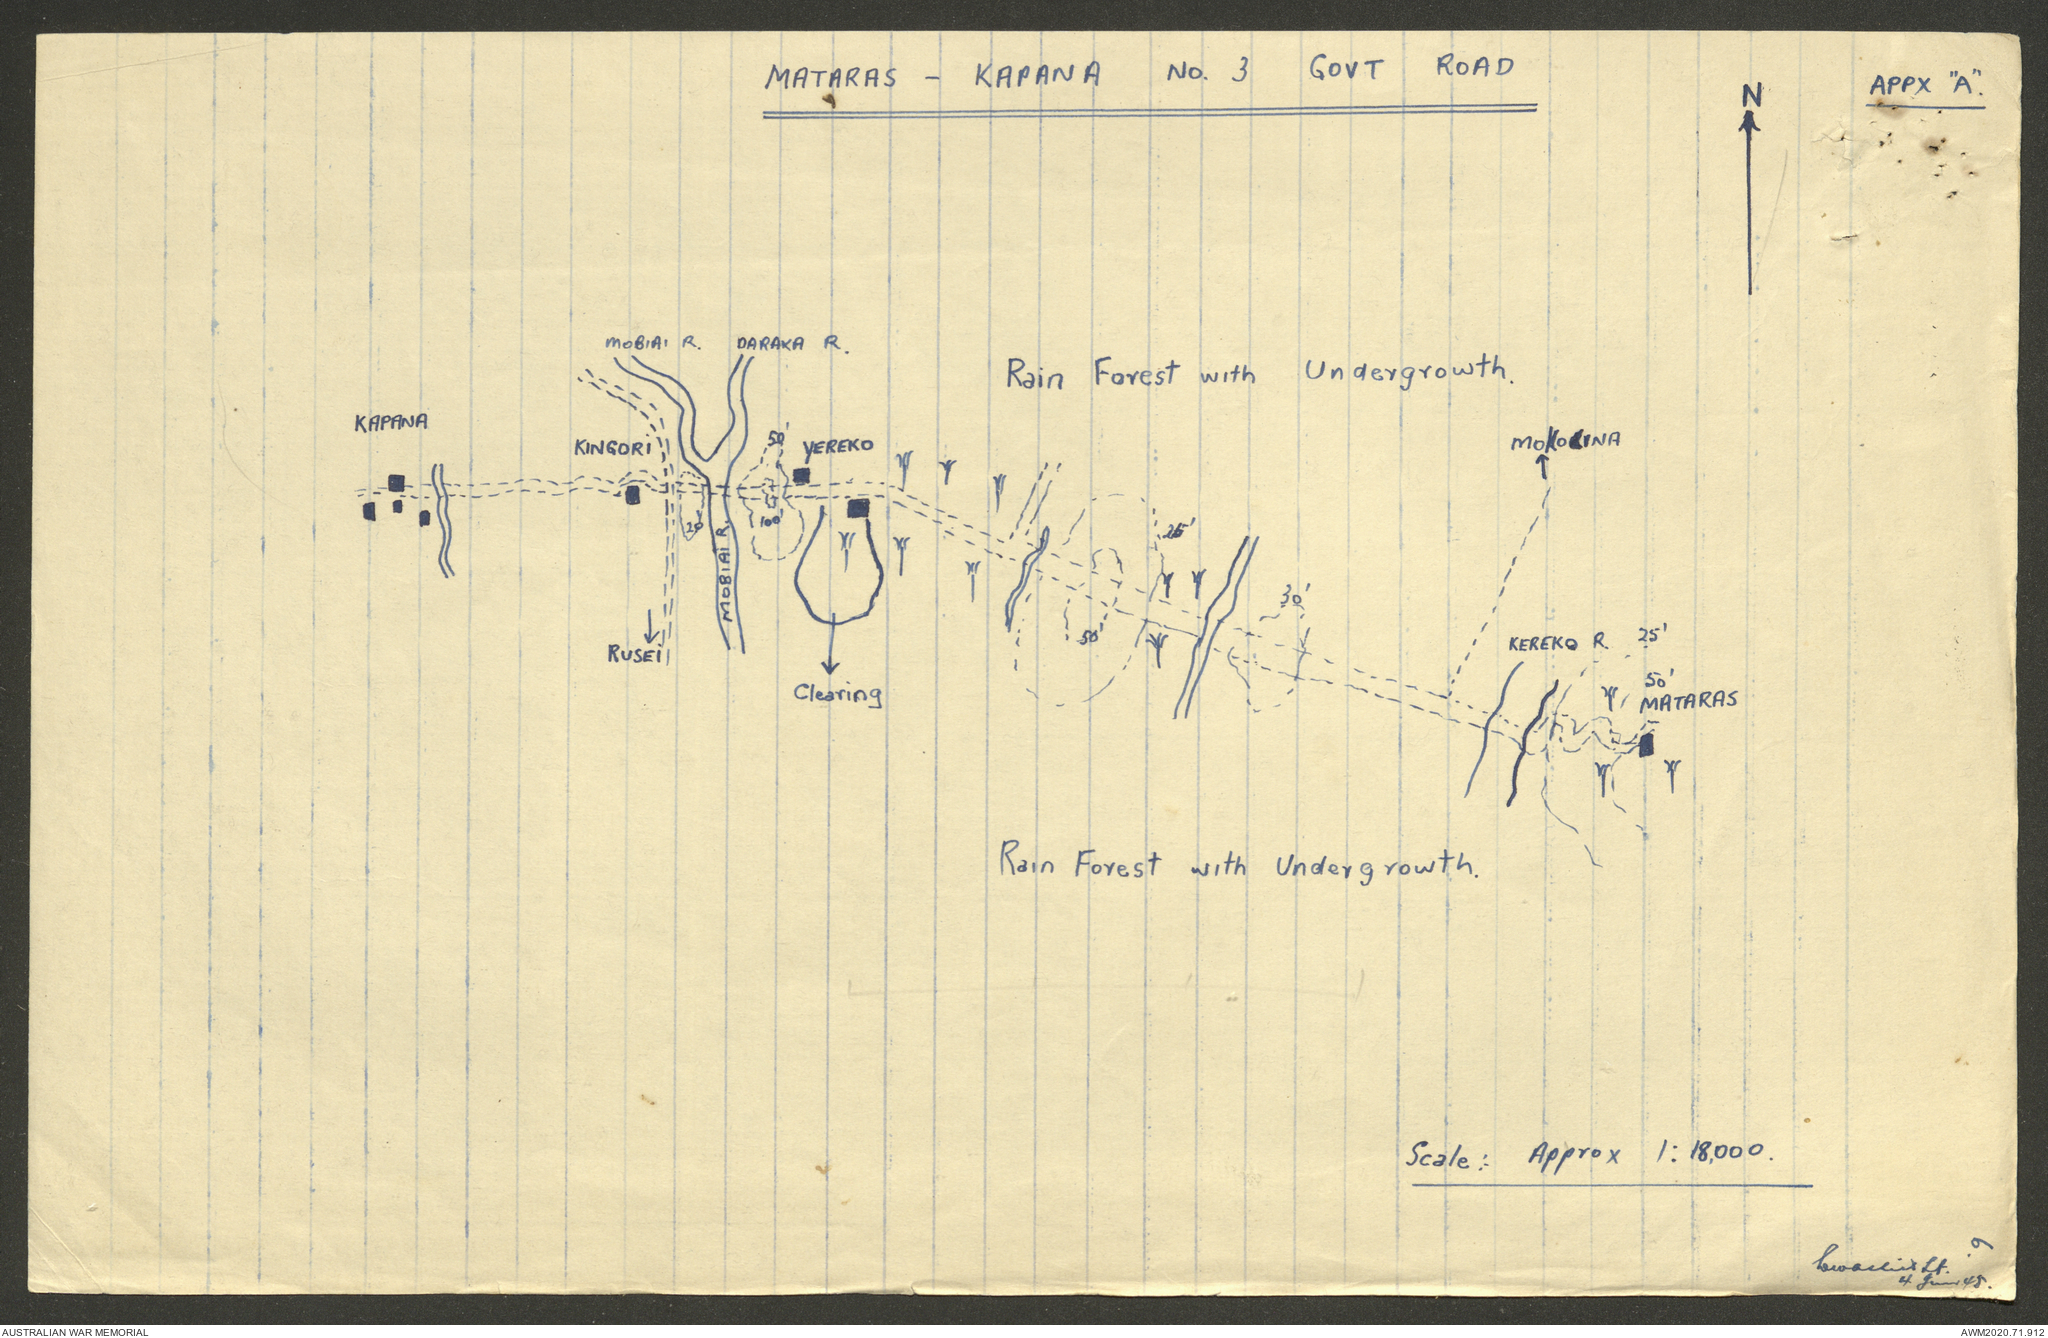 MATARAS - KAPANA No. 3 GOVT ROAD
APPX "A".
N
MOBIAI R. DARAKA R.
Rain Forest with Undergrowth.
KAPANA
KINGORI
50'
YEREKO
20'
100'
MOBIAI R.
25'
50'
30'
RUSEI
Clearing
KEREKO R.
25'
50'
MATARAS
Rain Forest with Undergrowth.
Scale: Approx 1:18,000.
Lt.
4 June 45.
9
AUSTRALIAN WAR MEMORIAL
AWM2020.71.912